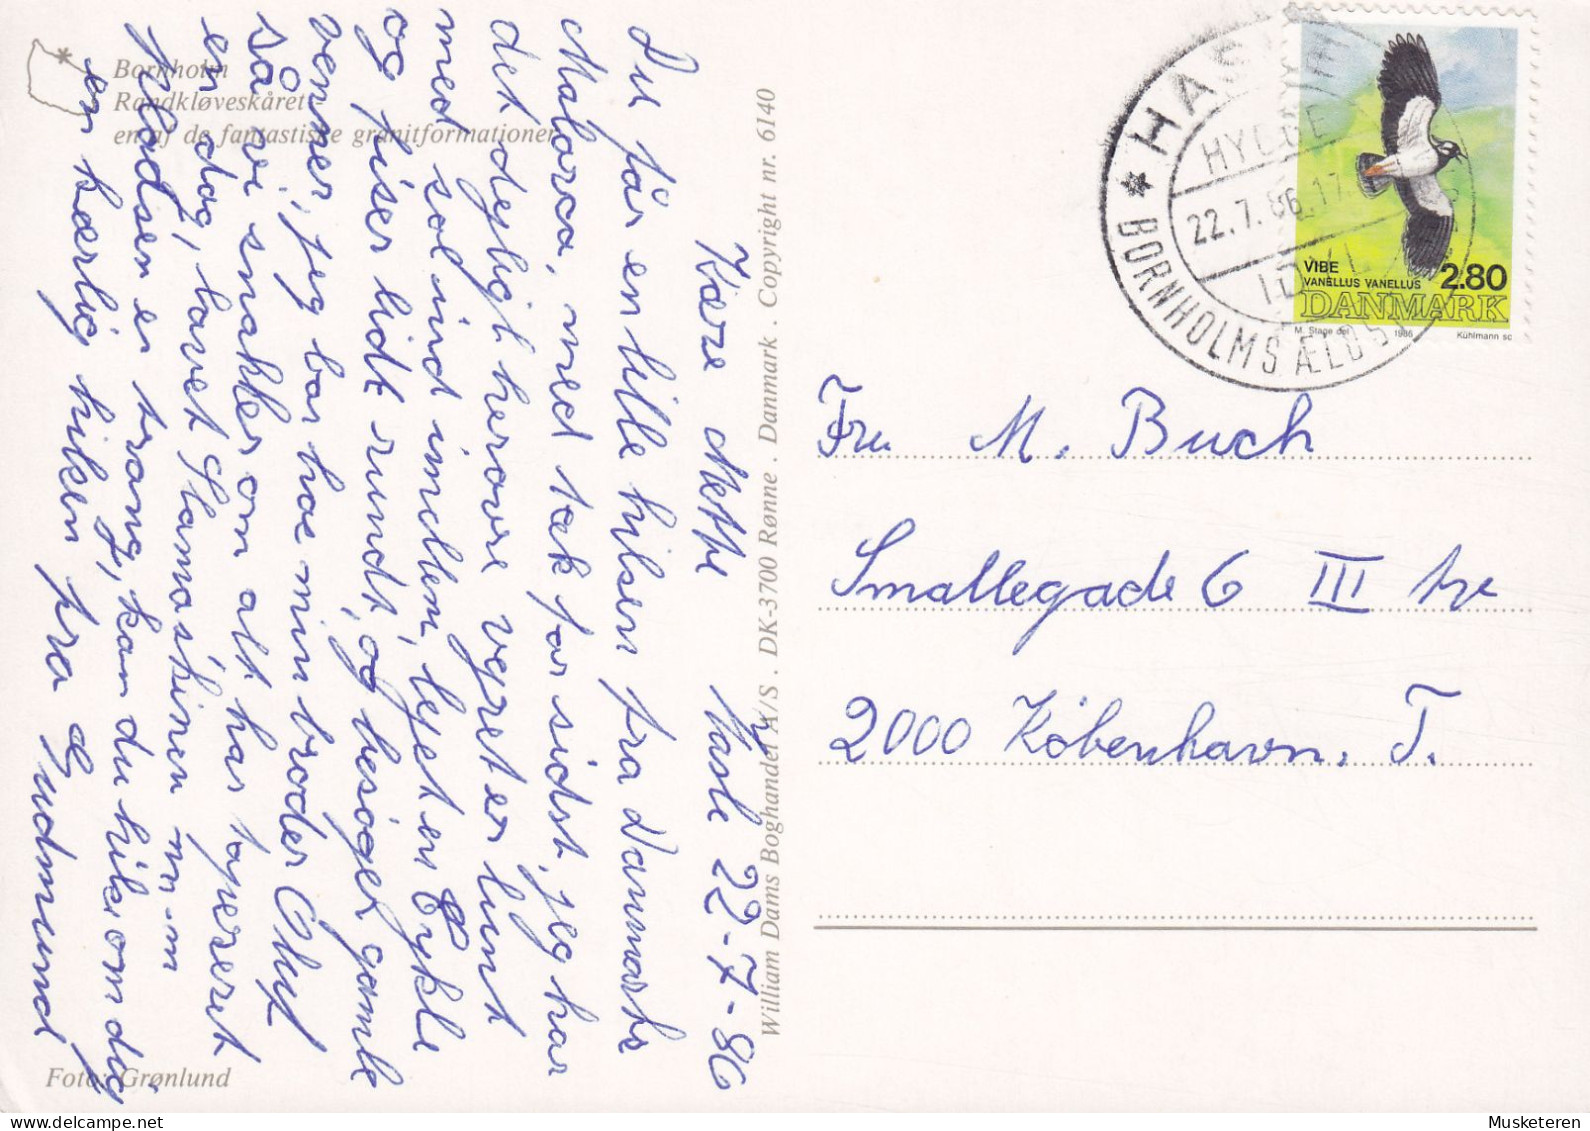 Bornholm
Randkløveskåret
en af de fantastiske granitformationer
Foto: Grønlund
William Dams Boghandel A/S . DK-3700 Rønne . Danmark . Copyright nr. 6140
Kære Mette Hasle 22-7-86
Du får en lille hilsen fra Danmarks
Malorca, med tak for sidst, jeg har
det dejligt herovre vejret er lunt
med sol ind imellem, lejet en Cykle
og fiser lidt rundt, og besøger gamle
venner, jeg bor hos min broder Oluf
så vi snakker om alt har taperet
en dag, lavet
en trang, kan du hilse om dig
en kærlig hilsen fra Gudmund
HASLE
HYGGE
22.7.86.17
IDYL
BORNHOLMS ÆLDST
VIBE
VANELLUS VANELLUS
2.80
DANMARK
M. Stage del 1986 Kühlmann sc
Fru M. Buch
Smallegade 6 III
2000 København. F.
Musketeren